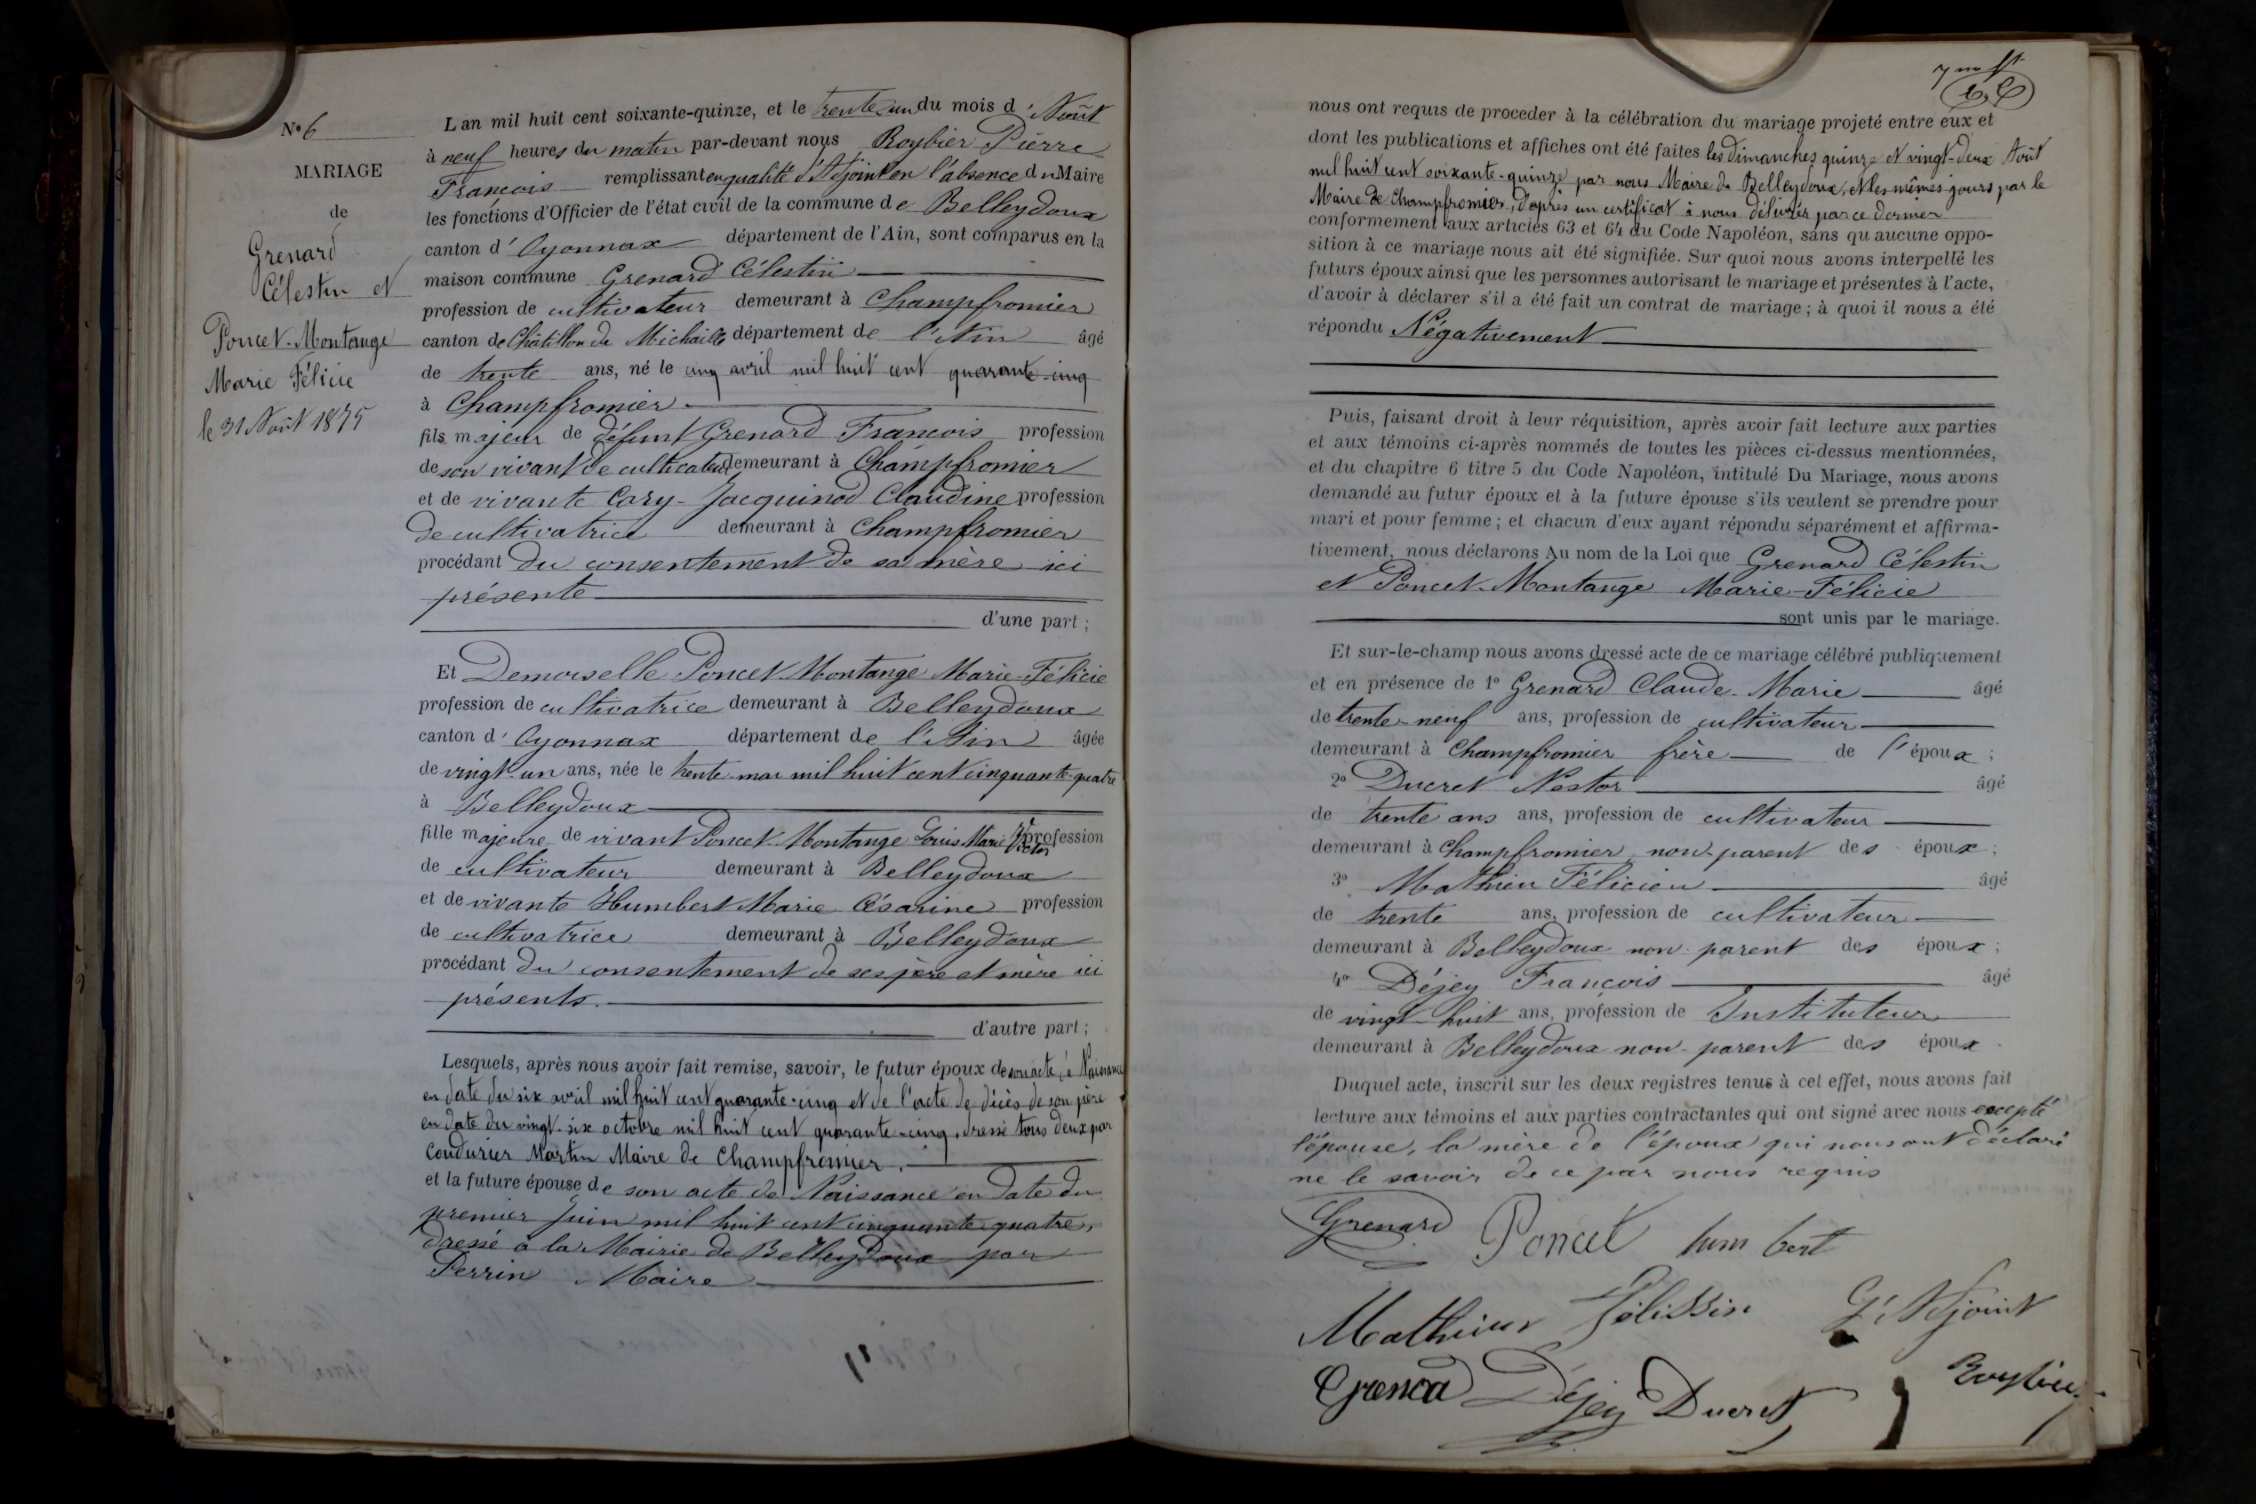 N° 6
MARIAGE
de
Grenard
Célestin et
Poncet-Montange
Marie Félicie
le 31 Août 1875
L'an mil huit cent soixante-quinze, et le trente un du mois d'Août
à neuf heures du matin par-devant nous Roybier Pierre
François remplissant en qualité d'Adjoint en l'absence du Maire
les fonctions d'Officier de l'état civil de la commune de Belleydoux
canton d'Oyonnax département de l'Ain, sont comparus en la
maison commune Grenard Célestin
profession de cultivateur demeurant à Champfromier
canton de Châtillon de Michaille département de l'Ain âgé
de trente ans, né le cinq avril mil huit cent quarante-cinq
à Champfromier
fils majeur de défunt Grenard François profession
de son vivant de cultivateur demeurant à Champfromier
et de vivante Cary-Jacquinod Claudine profession
de cultivatrice demeurant à Champfromier
procédant du consentement de sa mère ici
présente
d'une part ;
Et Demoiselle Poncet-Montange Marie-Félicie
profession de cultivatrice demeurant à Belleydoux
canton d'Oyonnax département de l'Ain âgée
de vingt-un ans, née le trente mai mil huit cent cinquante-quatre
à Belleydoux
fille majeure de vivant Poncet-Montange Louis Marie Victor profession
de cultivateur demeurant à Belleydoux
et de vivante Humbert Marie Césarine profession
de cultivatrice demeurant à Belleydoux
procédant du consentement de ses père et mère ici
présents.
d'autre part ;
Lesquels, après nous avoir fait remise, savoir, le futur époux de son acte de Naissance
en date du six avril mil huit cent quarante-cinq et de l'acte de décès de son père
en date du vingt-six octobre mil huit cent quarante-cinq, dressé tous deux par
Coudurier Martin Maire de Champfromier.
et la future épouse de son acte de Naissance en date du
premier juin mil huit cent cinquante quatre,
dressé à la Mairie de Belleydoux par
Perrin Maire
7me
nous ont requis de proceder à la célébration du mariage projeté entre eux et
dont les publications et affiches ont été faites les dimanches quinze et vingt-deux Août
mil huit cent soixante-quinze par nous Maire de Belleydoux, et les mêmes jours par le
Maire de Champfromier, d'après un certificat à nous délivrés par ce dernier
conformement aux articles 63 et 64 du Code Napoléon, sans qu'aucune oppo-
sition à ce mariage nous ait été signifiée. Sur quoi nous avons interpellé les
futurs époux ainsi que les personnes autorisant le mariage et présentes à l'acte,
d'avoir à déclarer s'il a été fait un contrat de mariage ; à quoi il nous a été
répondu Négativement
Puis, faisant droit à leur réquisition, après avoir fait lecture aux parties
et aux témoins ci-après nommés de toutes les pièces ci-dessus mentionnées,
et du chapitre 6 titre 5 du Code Napoléon, intitulé Du Mariage, nous avons
demandé au futur époux et à la future épouse s'ils veulent se prendre pour
mari et pour femme ; et chacun d'eux ayant répondu séparément et affirma-
tivement, nous déclarons Au nom de la Loi que Grenard Célestin
et Poncet-Montange Marie-Félicie
sont unis par le mariage.
Et sur-le-champ nous avons dressé acte de ce mariage célébré publiquement
et en présence de 1° Grenard Claude-Marie âgé
de trente-neuf ans, profession de cultivateur
demeurant à Champfromier frère de l'époux ;
2° Ducret Nestor âgé
de trente ans ans, profession de cultivateur
demeurant à Champfromier non-parent des époux ;
3° Mathieu Félicien âgé
de trente ans, profession de cultivateur
demeurant à Belleydoux non parent des époux ;
4° Déjey François âgé
de vingt-huit ans, profession de Instituteur
demeurant à Belleydoux non-parent des époux.
Duquel acte, inscrit sur les deux registres tenus à cet effet, nous avons fait
lecture aux témoins et aux parties contractantes qui ont signé avec nous excepté
l'épouse, la mère de l'époux qui nous ont déclaré
ne le savoir de ce par nous requis
Grenard Poncet humbert
Mathieu Félissin L'Adjoint
Grenard Déjey Ducret Roybier